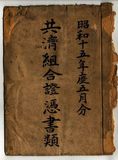 昭和十五年度五月分
共済組合證憑書類